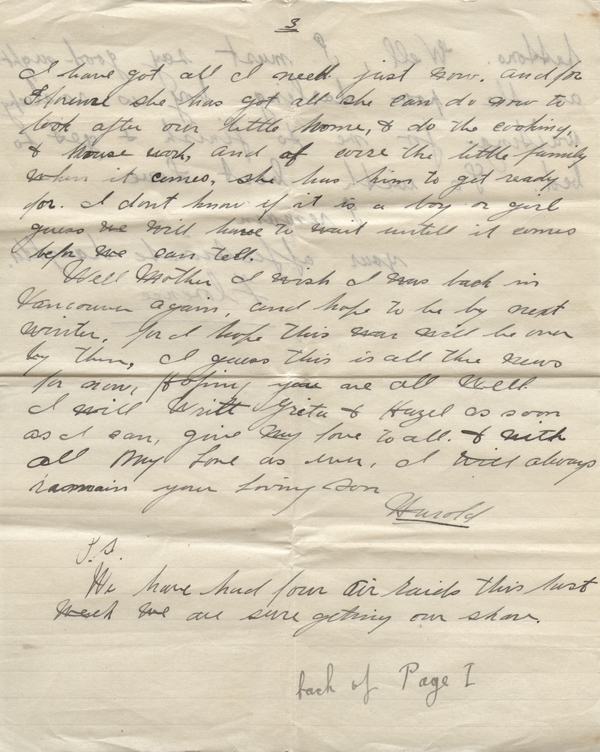 3
I have got all I need just now. and for
Florence she has got all she can do now to
look after our little home, & do the cooking,
& house work, and of corse the little family
when it comes, she has him to get ready
for. I dont know if it is a boy or girl
guess we will have to wait untill it comes
before we can tell.
Well Mother I wish I was back in
Vancouver again, and hope to be by next
winter, for I hope this war will be over
by then, I guess this is all the news
for now, Hoping you are all well
I will write Greta & Hazel as soon
as I can, give my love to all. & with
all my Love as ever, I will always
ramain your Loving Son
Harold
P.S.
We have had four Air raids this last
week we are sure getting our share.
back of Page I